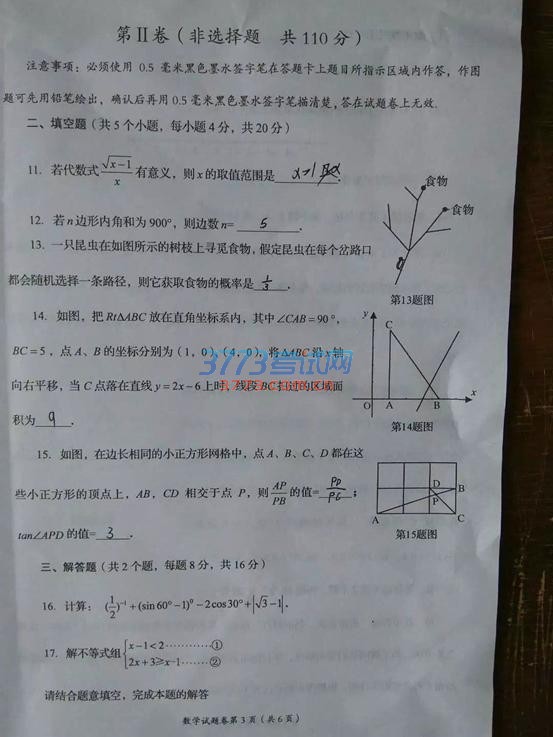 第Ⅱ卷（非选择题 共110分）
注意事项：必须使用 0.5 毫米黑色墨水签字笔在答题卡上题目所指示区域内作答，作图
题可先用铅笔绘出，确认后再用 0.5 毫米黑色墨水签字笔描清楚，答在试题卷上无效．
二、填空题（共5个小题，每小题4分，共20分）
11. 若代数式 √(x−1)/x 有意义，则x的取值范围是 x≥1 ．
12. 若n边形内角和为900°，则边数n= 5 ．
13. 一只昆虫在如图所示的树枝上寻觅食物，假定昆虫在每个岔路口
都会随机选择一条路径，则它获取食物的概率是 1/3 ．
食物
食物
第13题图
14. 如图，把 Rt∆ABC 放在直角坐标系内，其中∠CAB＝90°，
BC＝5，点 A、B 的坐标分别为（1，0）（4，0），将∆ABC 沿 x 轴
向右平移，当 C 点落在直线 y＝2x－6上时，线段 BC 扫过的区域面
积为 9 ．
y
C
O A B x
第14题图
3773考试网
15. 如图，在边长相同的小正方形网格中，点 A、B、C、D 都在这
些小正方形的顶点上，AB，CD 相交于点 P，则 AP/PB 的值= PD/PC ；
tan∠APD 的值= 3 ．
D
B
P
A C
第15题图
三、解答题（共2个题，每题8分，共16分）
16. 计算：(1/2)⁻¹＋(sin60°－1)⁰－2cos30°＋|√3－1|．
17. 解不等式组 { x－1＜2 …………①
2x＋3≥x-1 ……②
请结合题意填空，完成本题的解答
数学试题卷第3页（共6页）